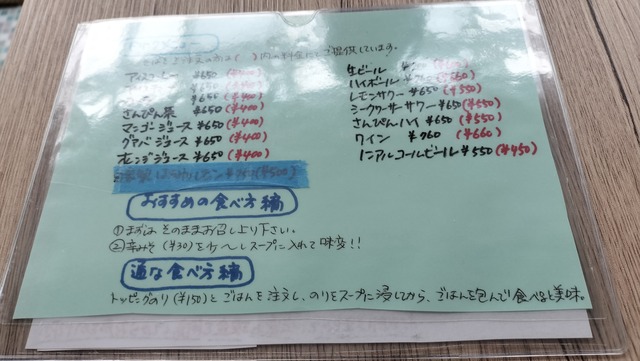 内の料金にてご提供しています。
アイスコーヒー ¥650 (¥400)
¥650 (¥400)
¥650 (¥400)
さんぴん茶 ¥650 (¥400)
マンゴージュース ¥650 (¥400)
グァバジュース ¥650 (¥400)
オレンジジュース ¥650 (¥400)
(¥500)
生ビール
ハイボール
レモンサワー ¥650 (¥550)
シークヮーサーサワー ¥650 (¥550)
さんぴんハイ ¥650 (¥550)
ワイン ¥760 (¥660)
ノンアルコールビール ¥550 (¥450)
おすすめの食べ方編
①まずはそのままお召し上り下さい。
②辛みそ (¥30)を少〜しスープに入れて味変!!
通な食べ方編
トッピングのり(¥150)とごはんを注文し、のりをスープに浸してから、ごはんを包んで食べると美味。